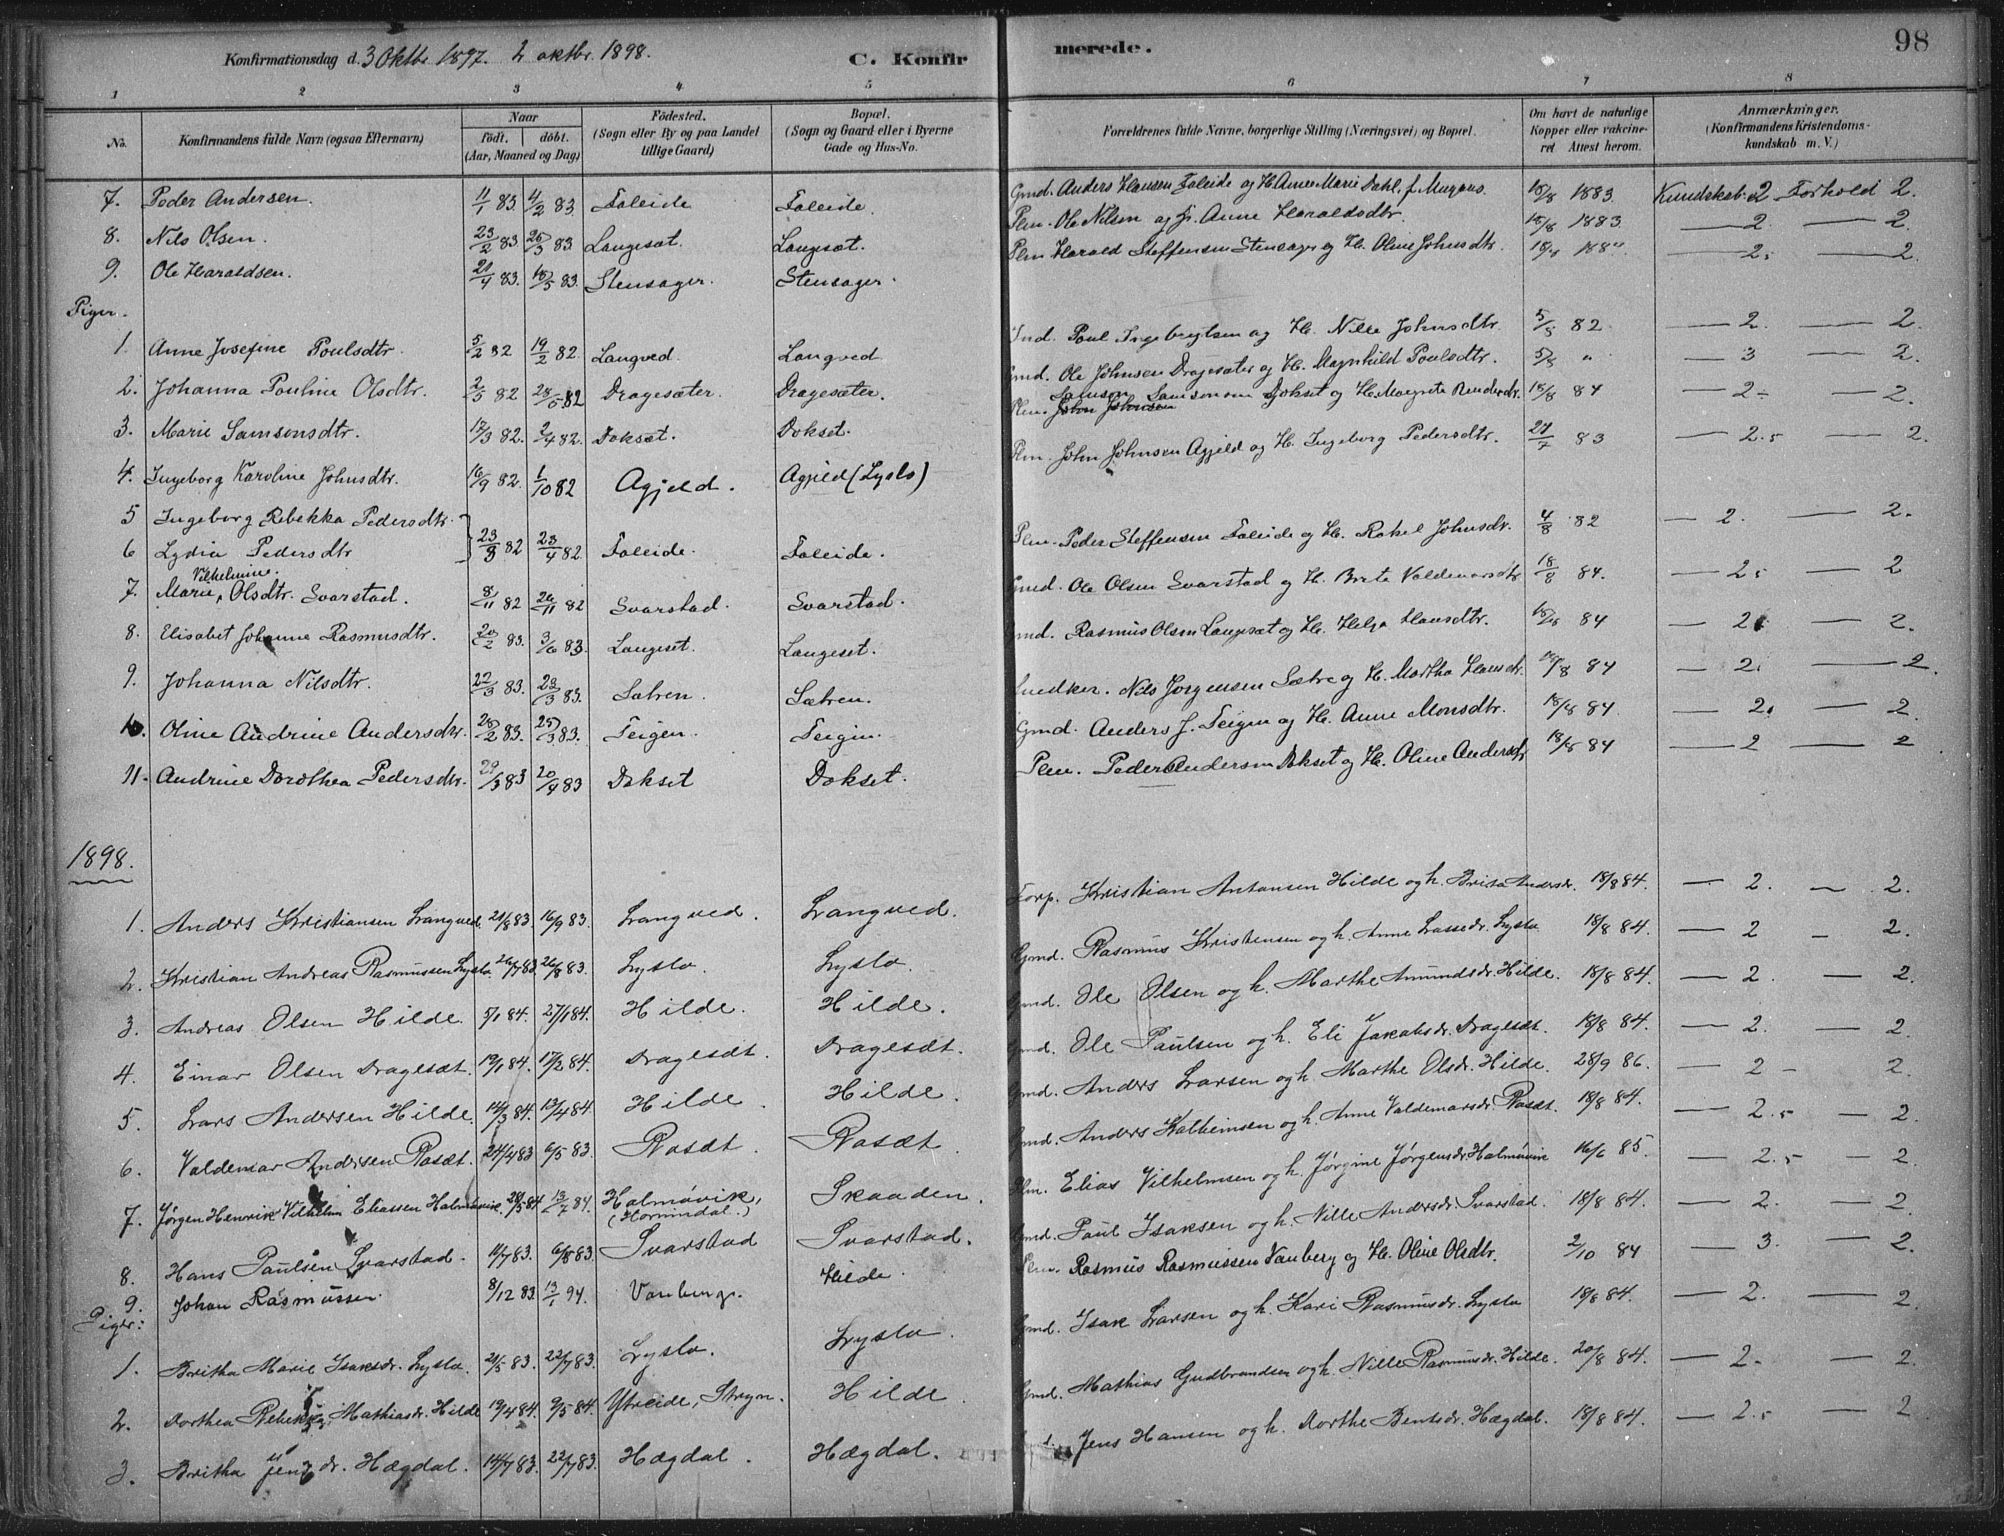 Konfirmationsdag d. 3 Oktbr. 1897. 2 oktbr. 1898. C. Konfirmerede. 98
1 2 3 4 5 6 7 8
No. Konfirmandens fulde Navn (ogsaa Efternavn) Naar født. døbt. (Aar, Maaned og Dag) Fødested. (Sogn eller By og paa Landet tillige Gaard) Bopæl. (Sogn og Gaard eller i Byerne Gade og Hus-No. Forældrenes fulde Navne, borgerlige Stilling (Næringsvei) og Bopæl. Om havt de naturlige Kopper eller vakcineret Attest herom. Anmærkninger. (Konfirmandens Kristendomskundskab m. V.)
7. Peder Andersen. 11/1 83. 4/2 83. Faleide Faleide. Gmd. Anders Hansen Faleide og H. Anne Marie Dahl, f. 18/8 1883. Kundskab. 2 Forhold 2.
8. Nils Olsen. 23/2 83 26/3 83 Langesæt. Langesæt. Plm. Ole Nilsen og Anne Haraldsdtr. 18/8 1883. — 2. — 2.
9. Ole Haraldsen. 21/4 83. 15/5 83. Stensager. Stensager. Plm Harald Steffensen Stensager og H. Oline Johnsdtr. — 2. — 2.
Piger.
1. Anne Josefine Poulsdtr. 5/2 82 19/2 82. Langved. Langved. Ind. Poul Ingebrigtsen og H. Nille Johnsdtr. 5/8 82 — 2. — 2.
2. Johanna Pauline Olsdtr. 2/5 82 28/5 82 Dragesæter. Dragesæter. Gmd. Ole Johnsen Dragesæter og H. Magnhild Poulsdtr. 5/8 " — 3 — 2.
3. Marie Samsonsdtr. 17/3 82. 2/4 82. Doksæt. Dokset. Plm. Samson Samsonsen Dokset og H. Margrete 18/8 84 — 2- — 2.
4. Ingeborg Karoline Johnsdtr. 16/9 82. 1/10 82 Agjeld. Agjeld (Lyslo) Plm. John Johnsen Agjeld og H. Ingeborg Pedersdtr. 27/7 83 — 2.5 — 2.
5 Ingeborg Rebekka Pedersdtr.
6 Lydia Pedersdtr 23/3 82 23/4 82. Faleide. Faleide. Plm. Peder Steffensen Faleide og H. Rakel Johnsdr. 4/8 82 — 2. — 2.
7. Marie Vilhelmine Olsdtr. Svarstad. 8/11 82 26/11 82 Svarstad. Svarstad. Gmd. Ole Olsen Svarstad og H. Brite Valdemarsdtr 18/8 84. — 2.5 — 2
8. Elisabet Johanne Rasmusdtr. 20/2 83. 3/6 83 Langeset. Langeset. Gmd. Rasmus Olsen Langesæt og H. Helga Hansdtr. 18/8 84 — 2 — 2.
9. Johanna Nilsdtr. 22/3 83. 23/3 83. Sætren. Sætren. Snedker. Nils Jørgensen Sætre og H. Martha Hansdtr 18/8 84 — 2. — 2.
10. Oline Andrine Andersdtr. 28/2 83. 25/3 83. Teigen. Teigen. Gmd. Anders J. Teigen og H. Anne Monsdtr. 18/8 84. — 2. — 2.
11. Andrine Dorothea Pedersdtr. 29/3 83 20/4 83 Dokset Dokset. Plm. Peder Andersen Dokset og H. Oline Andersdtr 18/8 84 — 2 — 2
1898.
1. Anders Kristiansen Langved. 21/8 83. 16/9 83. Langved. Langved. Korp. Kristian Antonsen Hilde og h. Brita Andersdr. 18/8 84. — 2. — 2.
2. Kristian Andreas Rasmussen Lyslo 26/7 83. 26/8 83. Lyslo. Lyslo. Gmd. Rasmus Kristensen og h. Anne Lassedr. Lyslo 18/8 84. — 2 — 2.
3. Andreas Olsen Hilde. 5/1 84. 27/1 84. Hilde. Hilde. Gmd. Ole Olsen og h. Marthe Amundsdr. Hilde. 18/8 84. — 2. — 2.
4. Einar Olsen Dragesæt. 19/1 84. 17/2 84. Dragesæt. Dragesæt. Gmd. Ole Paulsen og h. Eli Jakobsdr. Dragesæt. 18/8 84. — 2. — 2.
5. Lars Andersen Hilde. 14/3 84. 13/4 84. Hilde. Hilde. Gmd. Anders Larsen og h. Marthe Olsdr. Hilde. 28/9 86. — 2 — 2.
6. Valdemar Andersen Rasæt. 24/4 83 6/5 83. Rasæt. Rasæt. Gmd. Anders og h. Anne Valdemarsdr. Rasæt. 18/8 84. — 2.5 — 2
7. Jørgen Henrik Vilhelm Eliassen Halmøvik. 28/5 84 13/7 84. Halmøvik, (Hornindal.) Skaaden. Plm. Elias Vilhelmsen og h. Jørgine Jørgensdr. Halmøvik 16/6 85. — 2.5 — 2
8. Hans Paulsen Svarstad. 11/7 83. 6/8 83. Svarstad Svarstad. Gmd. Paul Isaksen og h. Nille Andersdr. Svarstad. 18/8 84. — 2. — 2
9. Johan Rasmussen 8/12 83. 13/1 94. Vanberg. Hilde. Plm. Rasmus Rasmussen Vanberg og H. Oline Olsdtr. 2/10 84 — 3. — 2.
Piger:
1. Britha Marie Isaksdr. Lyslo. 21/5 83. 22/7 83. Lyslo. Lyslo. Gmd. Isak Larsen og h. Kari Rasmusdr. Lyslo 18/8 84. — 2. — 2
2. Dorthea Rebekka Mathiasdr. Hilde 19/4 84. 2/5 84. Ytreide, Stryn. Hilde. Gmd. Mathias Gudbrandsen og h. Nille Rasmusdr. Hilde. 20/8 84. — 2. — 2.
3. Britha Jensdr. Hægdal. 14/7 83. 22/7 83. Hægdal. Hægdal. Jens Hansen og h. Dorthe Bentsdr. Hægdal. 18/8 84. — 2.5 — 2